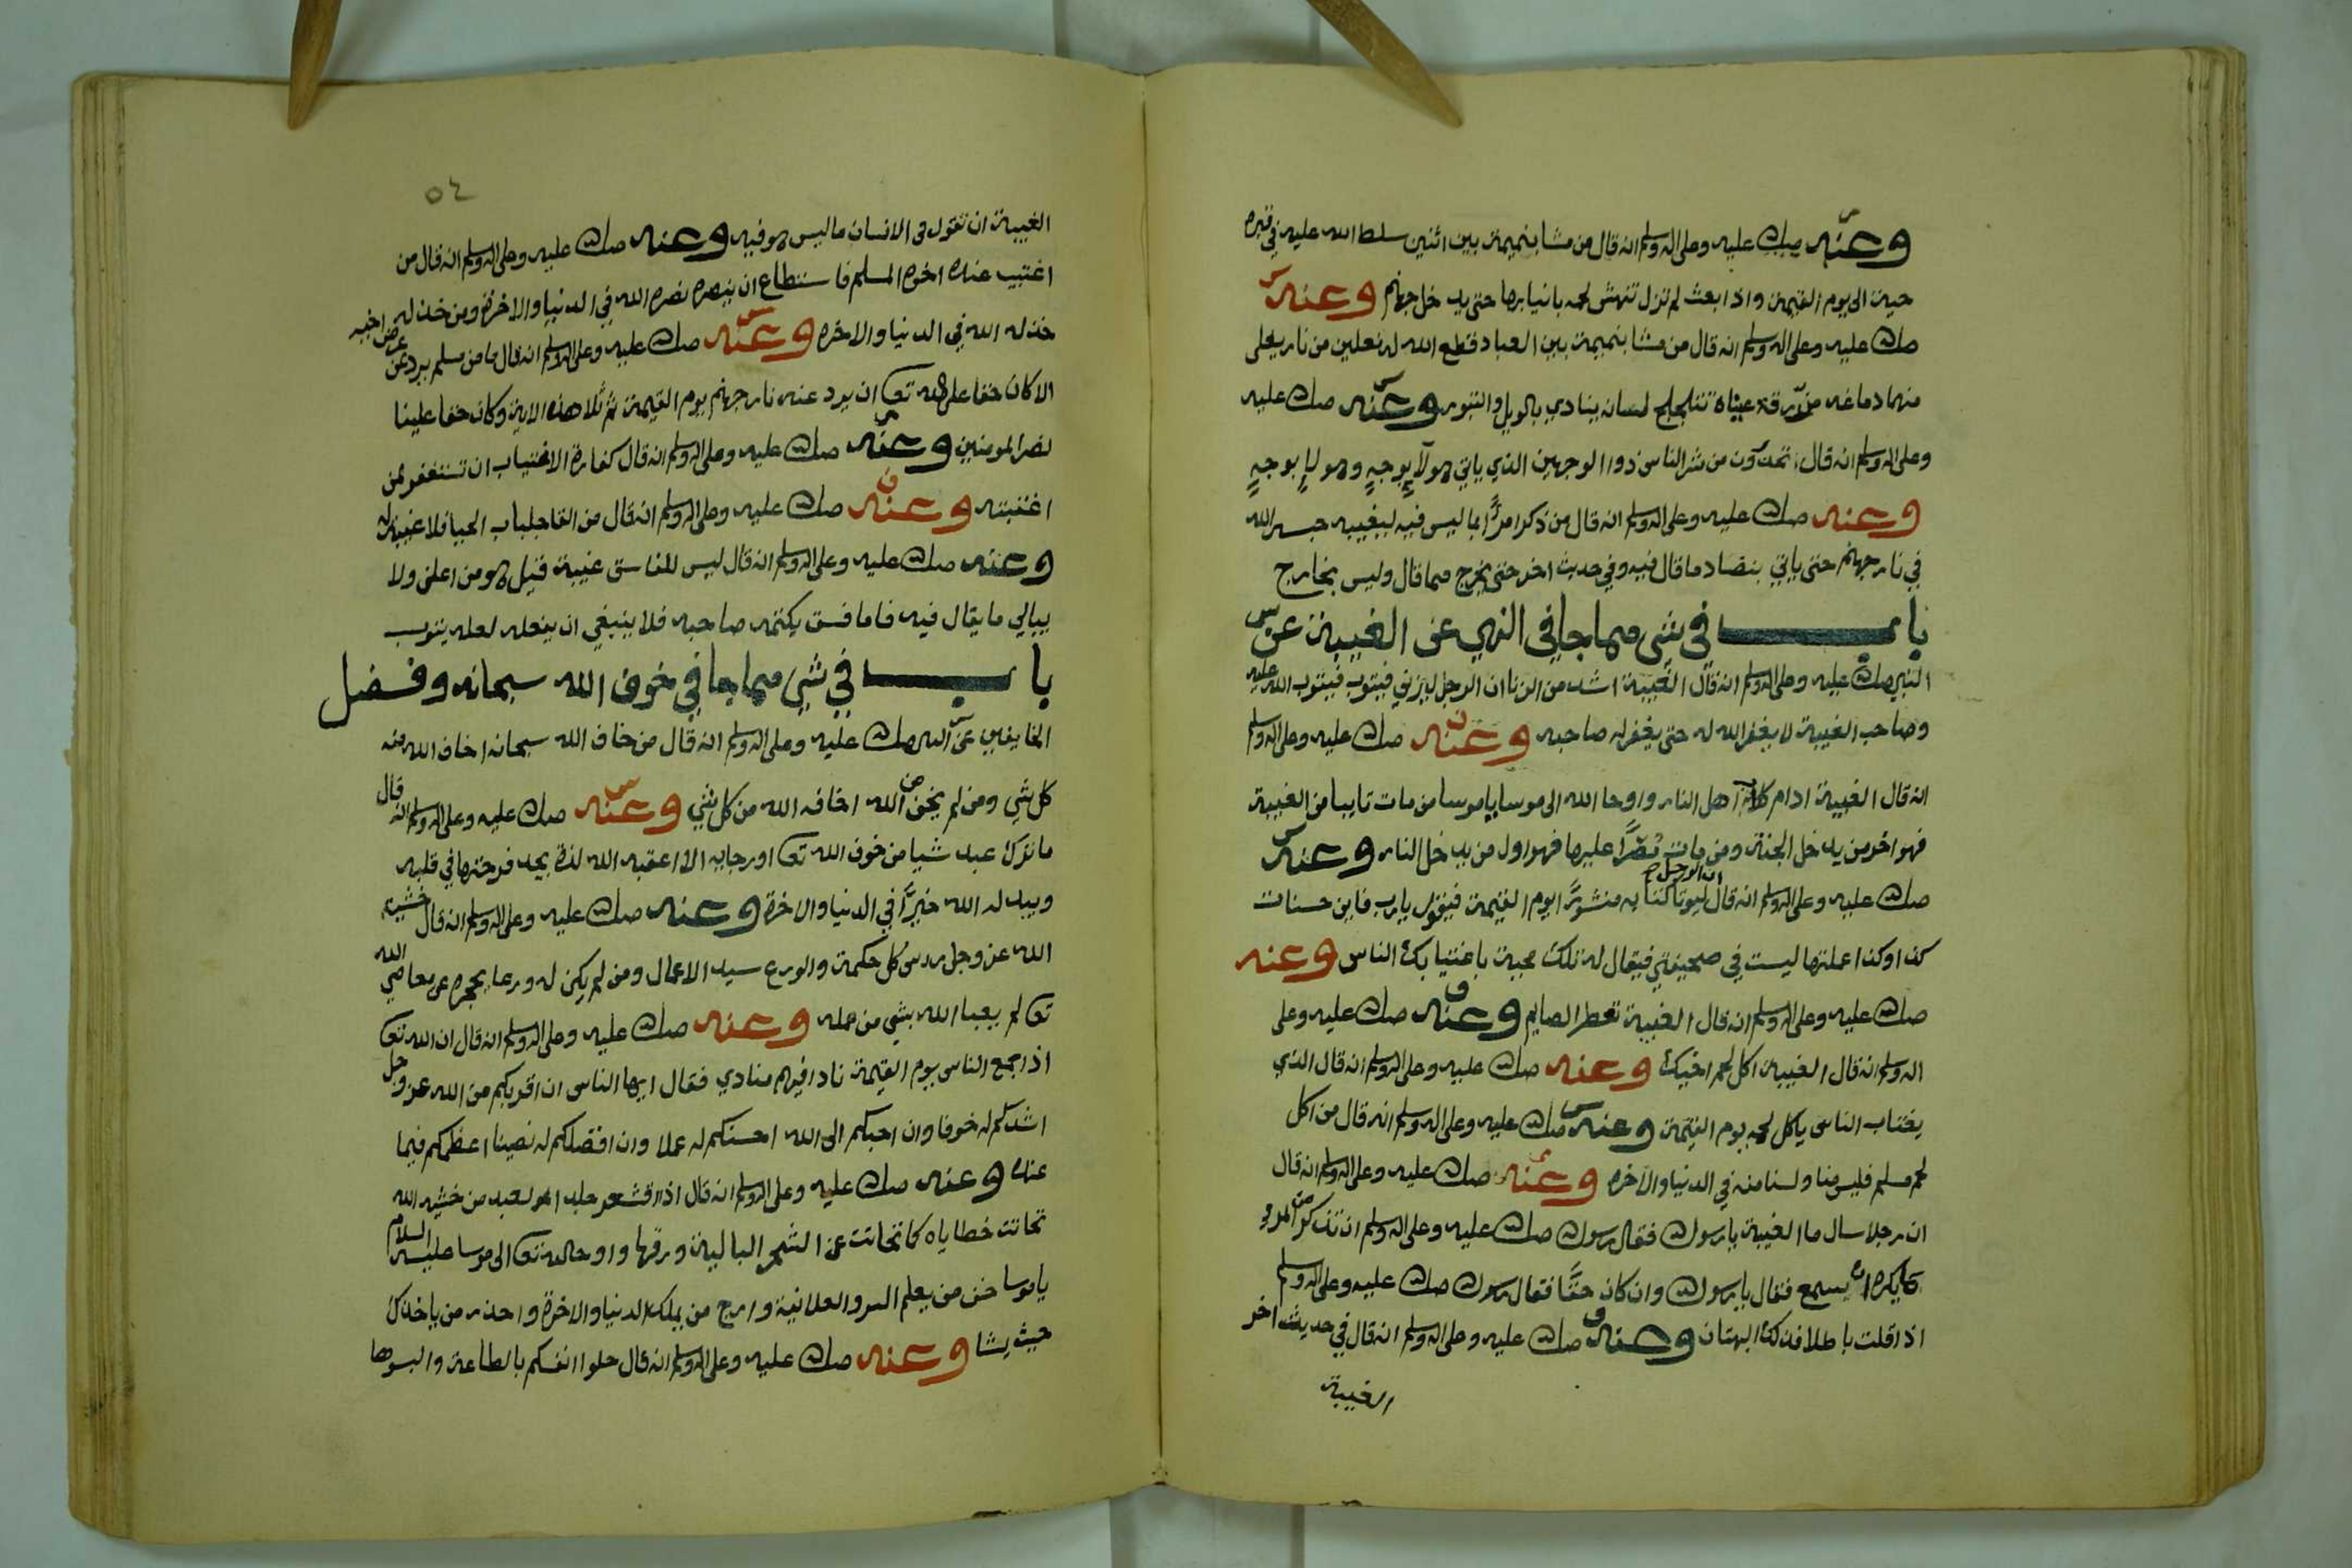 وعنه صلى الله عليه وعلى اله وسلم انه قال من مشا بنميمة بين اثنين سلط الله عليه في قبره
حين الى يوم القيمة واذا بعث لم تزل تنهش لحمه بانيابها حتى يدخل جهنم وعنه
صلى الله عليه وعلى اله وسلم انه قال من مشا بنميمة بين العباد قطع الله له نعلين من نار يغلى
منهما دماغه مزرقة عيناه تتلجلج لسانه ينادي بالويل والثبور وعنه صلى الله عليه
وعلى اله وسلم انه قال تجدون من شر الناس ذوا الوجهين الذي ياتي هولآء بوجهٍ وهولاءِ بوجهٍ
وعنه صلى الله عليه وعلى اله وسلم انه قال من ذكر امرًا بما ليس فيه ليغيبه حبسه الله
في نار جهنم حتى ياتي بنضاد ما قال فيه وفي حديث اخر حتى يخرج مما قال وليس بخارج
باب في شي مما جا في النهي عن الغيبة عن
النبي صلى الله عليه وعلى اله وسلم انه قال الغيبة اشد من الزنا ان الرجل ليزني فيتوب فيتوب الله عليه
وصاحب الغيبة لا يغفر الله له حتى يغفر له صاحبه وعنه صلى الله عليه وعلى اله وسلم
انه قال الغيبة ادام كلاب اهل النار واوحا الله الى موسا ياموسا من مات تايبا من الغيبة
فهو اخر من يدخل الجنة ومن مات مصرًا عليها فهو اول من يدخل النار وعنه
صلى الله عليه وعلى اله وسلم انه قال ان الرجل ليوتا كتابه منشورًا يوم القيمة فيقول يارب فاين حسنات
كذا وكذا عملتها ليست في صحيفتي فيقال له تلك محيت باغتيابك الناس وعنه
صلى الله عليه وعلى اله وسلم انه قال الغيبة تفطر الصايم وعنه صلى الله عليه وعلى
اله وسلم انه قال الغيبة اكل لحم اخيك وعنه صلى الله عليه وعلى اله وسلم انه قال الذي
يغتاب الناس ياكل لحمه يوم القيمة وعنه صلى الله عليه وعلى اله وسلم انه قال من اكل
لحم مسلم فليس منا ولسنا منه في الدنيا والاخره وعنه صلى الله عليه وعلى اله وسلم انه قال
ان رجلا سال ما الغيبة يا رسول الله فقال رسول الله صلى الله عليه وعلى اله وسلم ان تذكر من المرء
ما يكره ان يسمع فقال يا رسول الله وان كان حقًا فقال رسول الله صلى الله عليه وعلى اله وسلم
اذا قلت باطلا فذلك البهتان وعنه صلى الله عليه وعلى اله وسلم انه قال في حديث اخر
الغيبة
٥٤
الغيبة ان تقول في الانسان ما ليس هو فيه وعنه صلى الله عليه وعلى اله وسلم انه قال من
اغتيب عنده اخوه المسلم فاستطاع ان ينصره نصره الله في الدنيا والاخرة ومن خذله
خذله الله في الدنيا والاخره وعنه صلى الله عليه وعلى اله وسلم انه قال ما من مسلم يرد عن عرض اخيه
الا كان حقا على الله تعا ان يرد عنه نار جهنم يوم القيمة ثم تلا هذه الاية وكان حقا علينا
نصر المومنين وعنه صلى الله عليه وعلى اله وسلم انه قال كفارة الاغتياب ان تستغفر لمن
اغتبته وعنه صلى الله عليه وعلى اله وسلم انه قال من القا جلباب الحيا فلا غيبة له
وعنه صلى الله عليه وعلى اله وسلم انه قال ليس للفاسق غيبة قيل هو من اعلن ولا
يبالي ما يقال فيه فاما فسق يكتمه صاحبه فلا ينبغي ان يفعله لعله يتوب
باب في شي مما جا في خوف الله سبحانه وفضل
الخايفين عن النبي صلى الله عليه وعلى اله وسلم انه قال من خاف الله سبحانه اخاف الله منه
كل شي ومن لم يخف من الله اخافه الله من كل شي وعنه صلى الله عليه وعلى اله وسلم انه قال
ما ترك عبد شيا من خوف الله تعا او رجايه الا اعقبه الله لذة يجد فرحتها في قلبه
ويبدله الله خيرًا في الدنيا والاخرة وعنه صلى الله عليه وعلى اله وسلم انه قال خشية
الله عز وجل راس كل حكمة والورع سيد الاعمال ومن لم يكن له ورعا يحجزه عن معاصي الله
تعا لم يعبا الله بشي من عمله وعنه صلى الله عليه وعلى اله وسلم انه قال ان الله تعا
اذا جمع الناس يوم القيمة نادا فيهم منادي فقال ايها الناس ان اقربكم من الله عز وجل
اشدكم له خوفا وان احبكم الى الله احسنكم له عملا وان افضلكم له نصيبا اعظمكم فيما
عنده وعنه صلى الله عليه وعلى اله وسلم انه قال اذا اقشعر جلد العبد من خشية الله
تحاتت خطاياه كما تحاتت عن الشجر البالية ورقها واوحا الله تعا الى موسا عليه السلام
ياموسا خف من يعلم السر والعلانية وارج من يملك الدنيا والاخرة واحذر من ياخذك
حيث يشا وعنه صلى الله عليه وعلى اله وسلم انه قال حلوا انفسكم بالطاعة والبسوها